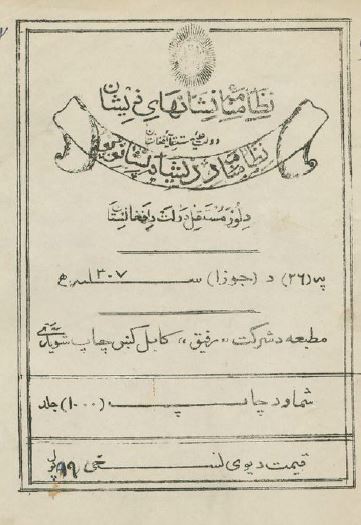 نظامنامهٔ نشانهای ذیشان
دولت علیه مستقله افغانستان
نظامنامه د نشانو
د لوړ مستقل دولت د افغانستان
په (۲۶) د (جوزا) ســـنه ۱۳۰۷ هـ
مطبعه د شرکت «رفیق» کابل کښ چاپ شویدی
شمار د چاپ (۱۰۰۰) جلد
قیمت د یوی نسخی ۹۹ پولی